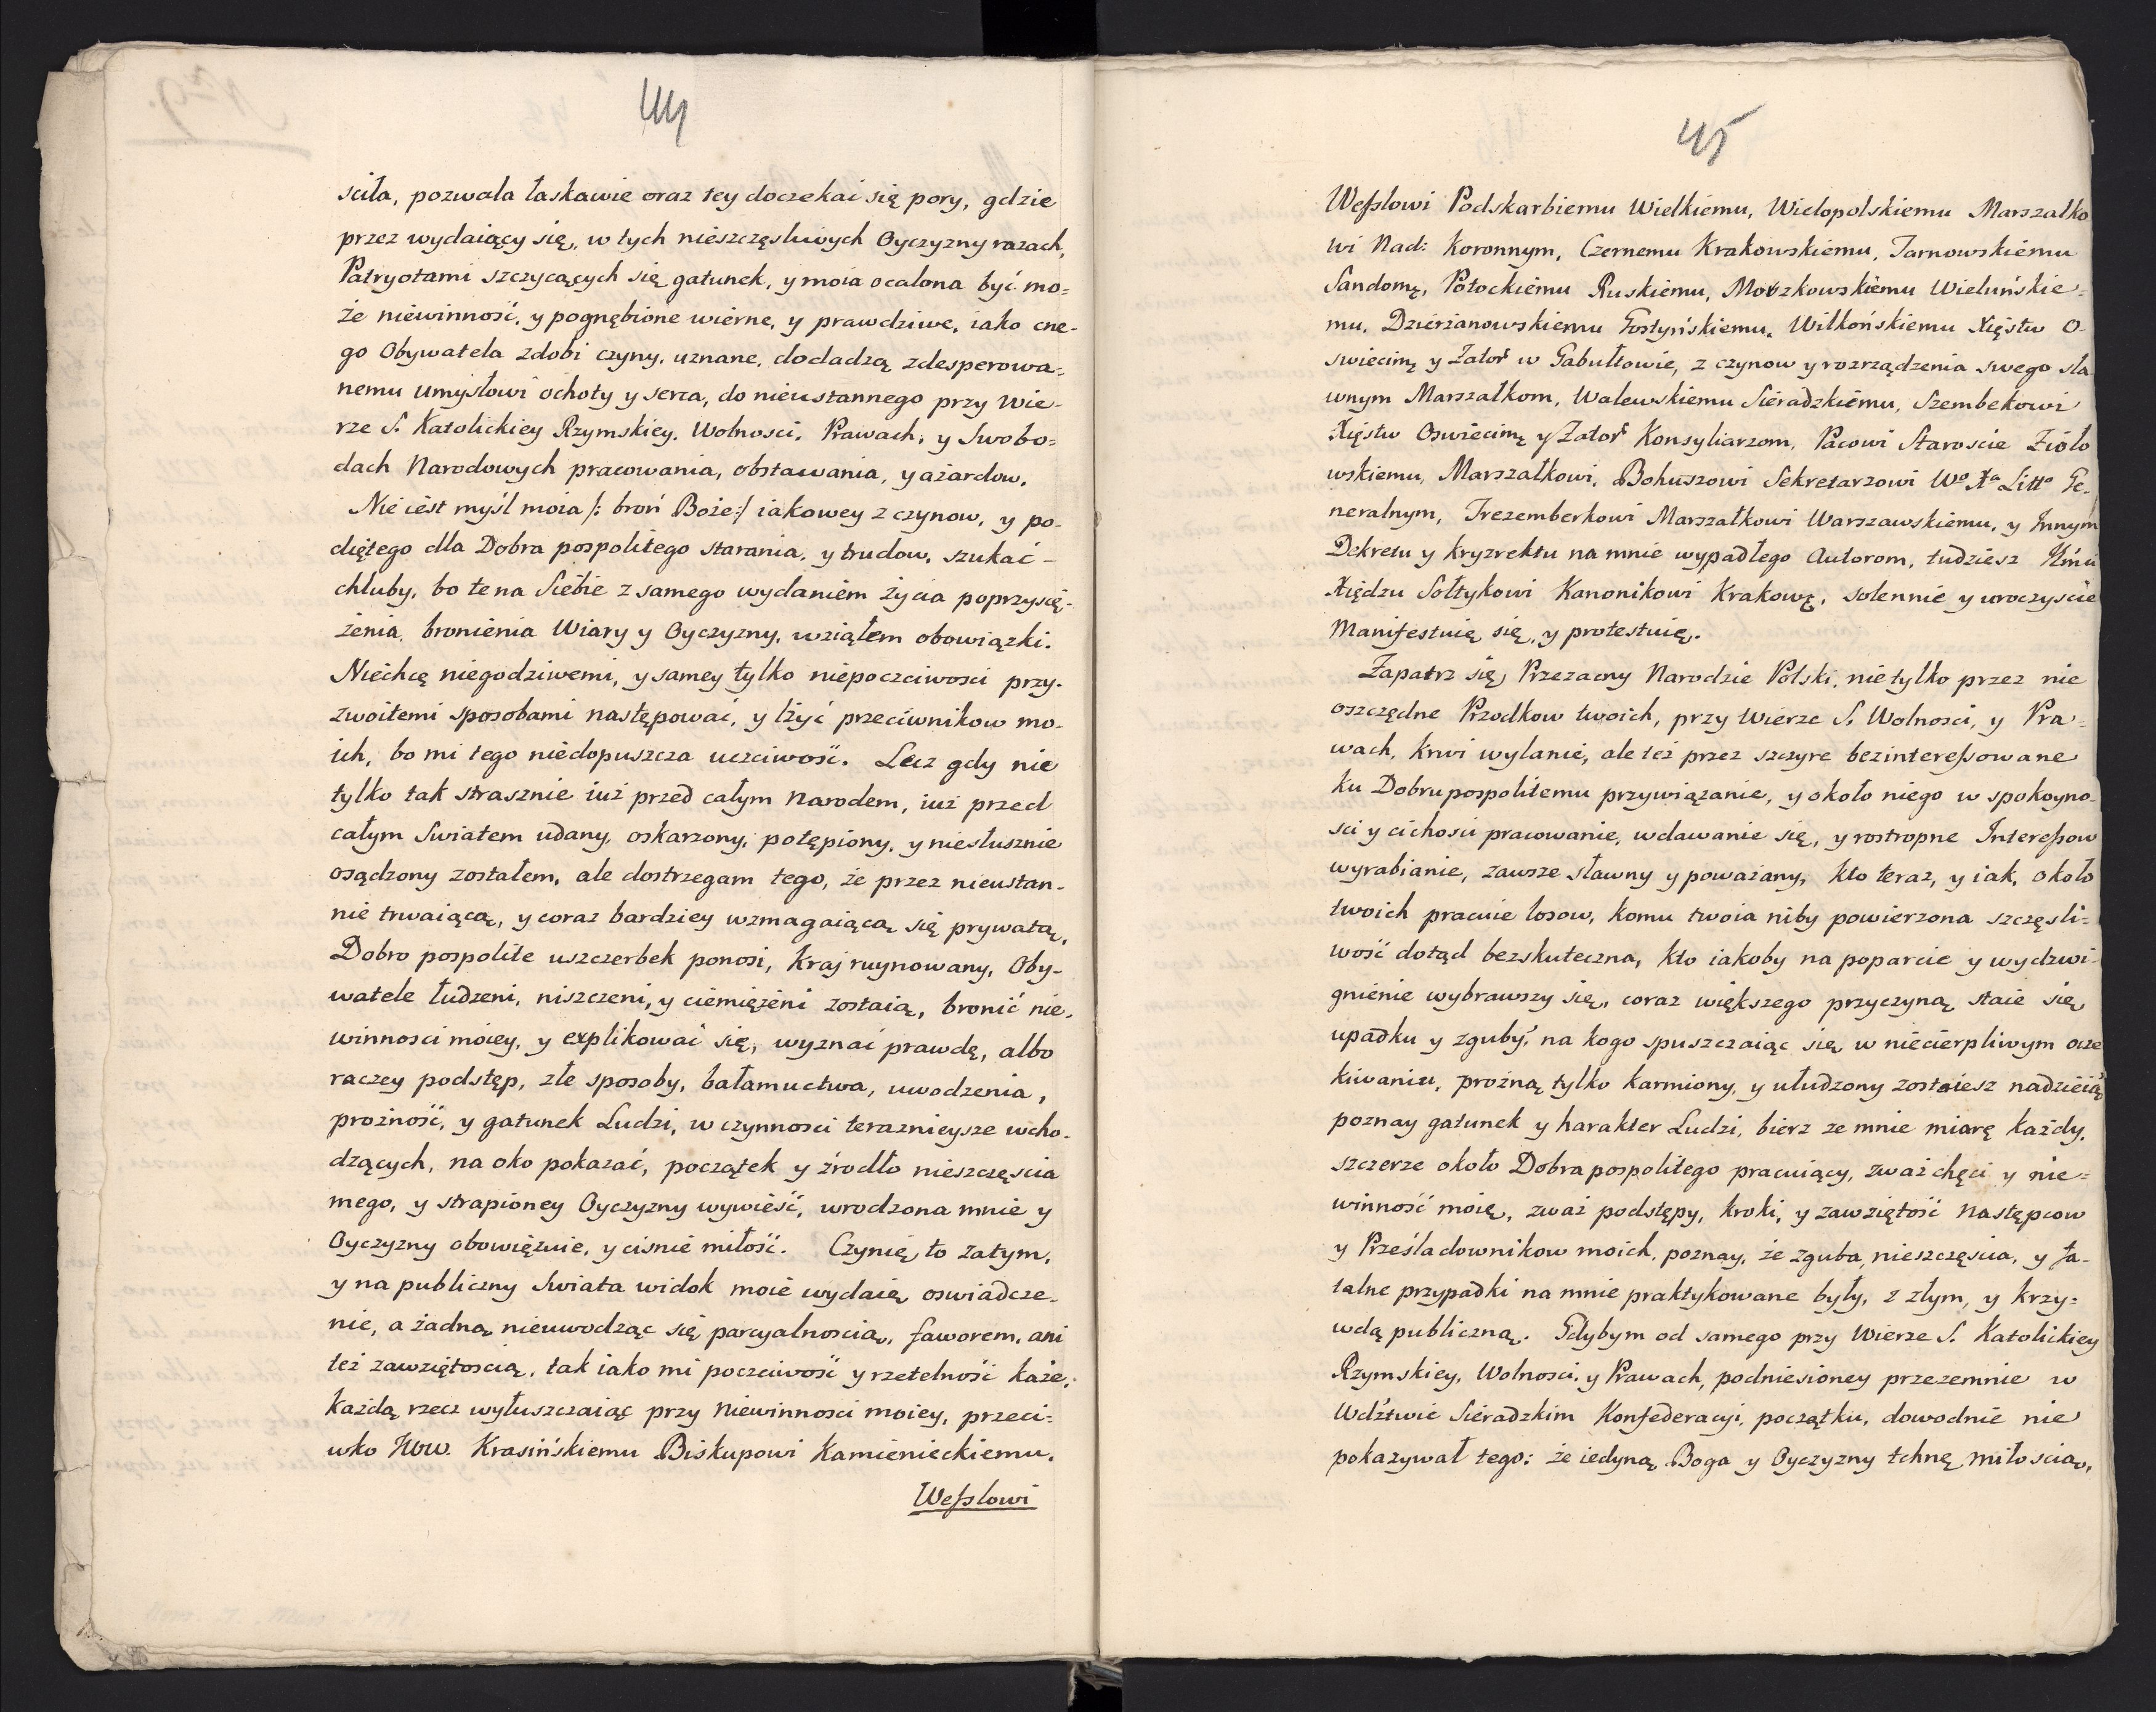 44
sciła, pozwala łaskawie oraz tey doczekać się pory, gdzie
przez wydaiący się, w tych niészczęsliwych Oyczyzny razach,
Patryotami szczycących się gatunek, y moia ocalona być mo=
że niéwinność, y pognębione wiérne, y prawdziwe, iako cne-
go Obywatela zdobi czyny, uznane, dodadzą zdesperowa=
nemu umysłowi ochoty y serca, do nieustannego przy Wie-
rze S. Katolickiey Rzymskiey. Wolnosci, Prawach, y Swobo=
dach Narodowych pracowania, obstawania, y ażardow.
Nie iést myśl moia /: broń Boże :/ iakowey z czynow, y po-
diętego dla Dobra pospolitego starania, y trudow, szukać -
chluby, bo te na Siebie z samego wydaniém życia poprzysię-
żenia, broniénia Wiary y Oyczyzny, wziąłem obowiązki.
Niéchcę niegodziwemi, y samey tylko niépoczciwosci przy-
zwoitemi sposobami następować, y lżyć przeciwnikow mo-
ich, bo mi tego niédopuszcza uczciwość. Lecz gdy nie
tylko tak strasznie iuż przed całym Narodem, iuż przed
całym Swiatem udany, oskarzony, potępiony, y niesłusznie
osądzony zostałem, ale dostrzegam tego, że przez nieustan-
nie trwaiącą, y coraz bardziey wzmagaiącą się prywatą,
Dobro pospolite uszczerbek ponosi, Kraj ruynowany, Oby-
watele łudzeni, niszczeni, y ciémiężéni zostaią, bronić nie-
winnosci moiey, y explikować się, wyznać prawdę, albo
raczey podstęp, złe sposoby, bałamuctwa, uwodzenia,
prożność, y gatunek Ludzi, w czynnosci terażnieysze wcho-
dzących, na oko pokazać, początek y źrodło nieszczęscia
mego, y strapioney Oyczyzny wywieść, wrodzona mnie y
Oyczyzny obowięzuie, y cisnie miłość. Czynię to zatym,
y na publiczny Swiata widok moié wydaię oswiadcze-
nie, a żadną nieuwodząc się parcyalnoscią, faworem, ani
też zawziętoscią, tak iako mi poczciwość y rzetelność każe,
każdą rzecz wyłuszczaiąc przy Niewinnosci moiey, przeci=
wko JWW. Krasińskiemu Biskupowi Kamiénieckiemu,
Wesslowi
45
Wesslowi Podskarbiemu Wielkiemu, Wielopolskiemu Marszałko
wi Nad: Koronnym, Czernemu Krakowskiému, Tarnowskiému
Sandomę, Potockiému Ruskiému, Morzkowskiému Wieluńskie=
mu, Dzierżanowskiemu Gostyńskiemu, Wilkońskiemu Xięstw O-
swiecimę y Zator w Gabułtowie, z czynow y rozrządzenia swego sła
wnym Marszałkom, Walewskiemu Siéradzkiému, Szembekowi
Xięstw Oswiecimę y Zator Konsyliarzom, Pacowi Staroscie Zioło
wskiemu, Marszałkowi, Bohuszowi Sekretarzowi Wo Xa Litto Ge-
neralnym, Trezemberkowi Marszałkowi Warszawskiemu, y Innym
Dekretu y kryzrektu na mnie wypadłego Autorom, tudziesz Jmći
Xiędzu Sołtykowi Kanonikowi Krakowę, solennie y uroczyscie
Manifestuię się, y protestuię.
Zapatrz się Przezacny Narodzie Polski, nie tylko przez nie
oszczędne Przodkow twoich, przy Wierze S. Wolnosci, y Pra=
wach, krwi wylanie, ale też przez szczyre bezinteressowane
ku Dobrupospolitemu przywiązanie, y około niego w spokoyno-
sci y cichosci pracowanie, wdawanie się, y rostropne Interessow
wyrabianie, zawsze sławny y poważany, kto teraz, y iak, około
twoich pracuie losow, komu twoia niby powierzona szczęsli=
wość dotąd bezskuteczna, kto iakoby na poparcie y wydzwi-
gniénie wybrawszy się, coraz większego przyczyną staie się
upadku y zguby, na kogo spuszczaiąc się w niécierpliwym ocze
kiwaniu, prożną tylko karmiony, y ułudzony zostaiesz nadzieią
poznay gatunek y harakter Ludzi, bierz ze mnie miarę każdy,
szczerze około Dobra pospolitego pracuiący, zważ chęci y nie=
winność moię, zważ podstępy, kroki, y zawziętość Następcow
y Prześladownikow moich, poznay, że zguba, nieszczęscia, y fa-
talne przypadki na mnie praktykowane były, z złym, y krzy=
wdą publiczną. Gdybym od samego przy Wierze S. Katolickiey
Rzymskiey, Wolnosci, y Prawach, podniesioney przezemnie w
Wdztwie Siéradzkim Konfederacyi, początku, dowodnie nie
pokazywał tego: że iedyną Boga y Oyczyzny tchnę miłoscią,